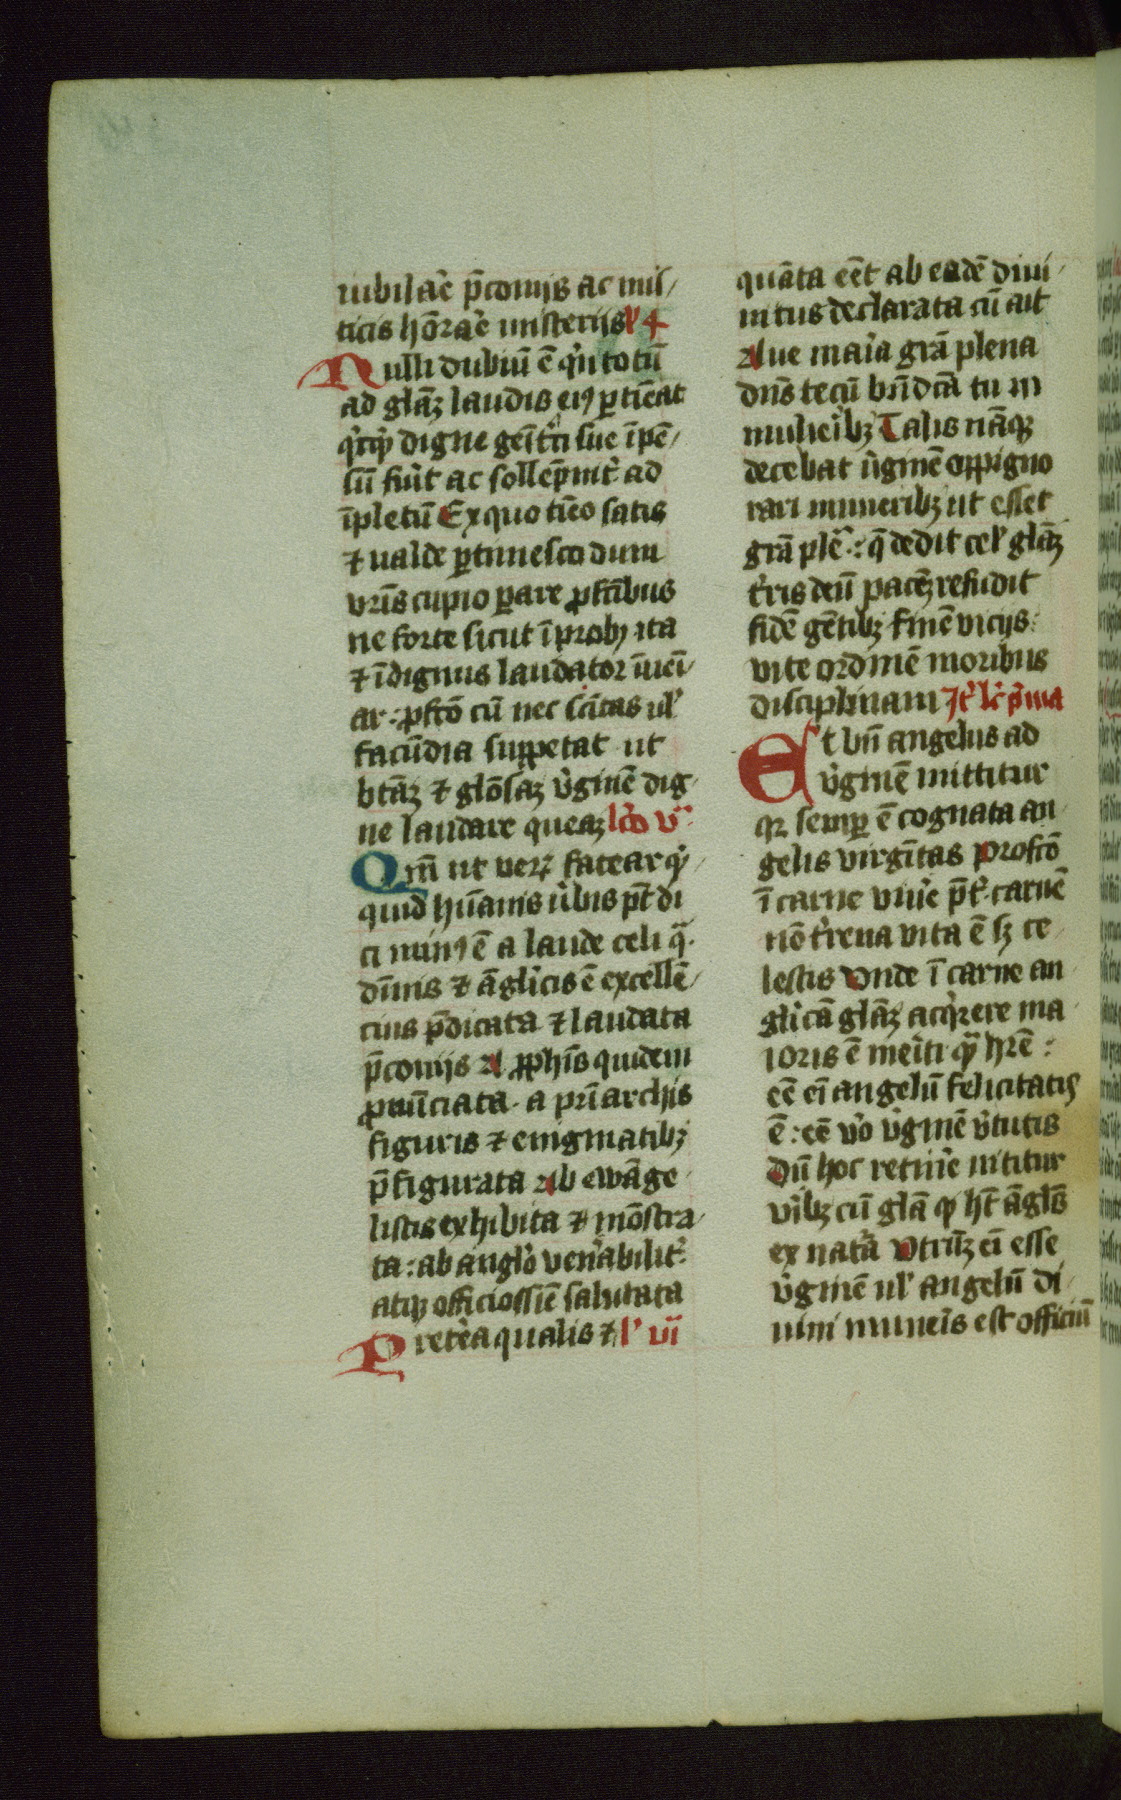 iubilac̄e p̄conijs ac mis/
ticis hōrac̄e misterijs l' 4
Nulli dubiū ē q'n totū
ad glāȝ laudis ei9 ꝑtīeat
q'cq̄ꝫ digne geīt'ci sue īpē/
sū fūit ac sollēpnit' ad
īpletū Ex quo tīeo satis
⁊ ualde ꝑtimesco dum
vr̄is cupio ꝑare ꝓfcībus
ne forte sicut īprobꝫ ita
⁊ īdignus laudator īueī/
ar: ꝓfcō cū nec scītas ul'
facūdia suppetat ut
btāȝ ⁊ glōsaȝ v̄gīnē dig-
ne laudare queaȝ lc̄o v
Qm̄ ut verꝝ fatear q'c/
quid hūanis ūbis pt̄ di
ci min9 ē a laude celi q̄
dīuis ⁊ āglicis ē excellē/
cius p̄dicata ⁊ laudata
p̄conijs A ꝓphīs quidem
ꝓnūciata a prīarchis
figuris ⁊ enigmatibꝫ
p̄figurata Ab ewāge
listis exhibita ⁊ mōstra/
ta: ab anglo ven'abilit'
atqꝫ officiossīe salutata
Pretēa qualis ⁊ l' vi
quāta eēt ab eadē diui/
nitus declarata cū ait
Aue maria grā plena
dn̄s tecū bn̄dcā tu in
mulieībꝫ Talis nāqꝫ
decebat ūgīnē oppigno
rari muneribꝫ ut esset
grā plē: q̄ dedit cel' glāȝ
t'ris deū pacēȝ refudit
fidē gētibꝫ finē vicijs:
vite ordinē moribus
disciplinam It' lc̄ p'ma
Et bn̄ angelus ad
v̄gīnē mittitur
qꝛ semꝑ ē cognata an
gelis virgītas Profcō
ī carne viūe p̄t' carnē
nō t'rena vita ē sꝫ ce
lestis Vnde ī carne an
glicā glāȝ acq'rere ma
ioris ē meīti q̄ꝫ hr̄e:
eē eī angelū felicitatis
ē: eē v'o v̄gīnē v̄tutis
Dū hoc retinē nititur
vīibꝫ cū glā qd' ht̄ āgls̄
ex nat'a Vtrūqꝫ eī esse
v̄gīnē ul' angelū di/
uini muneīs est officiū